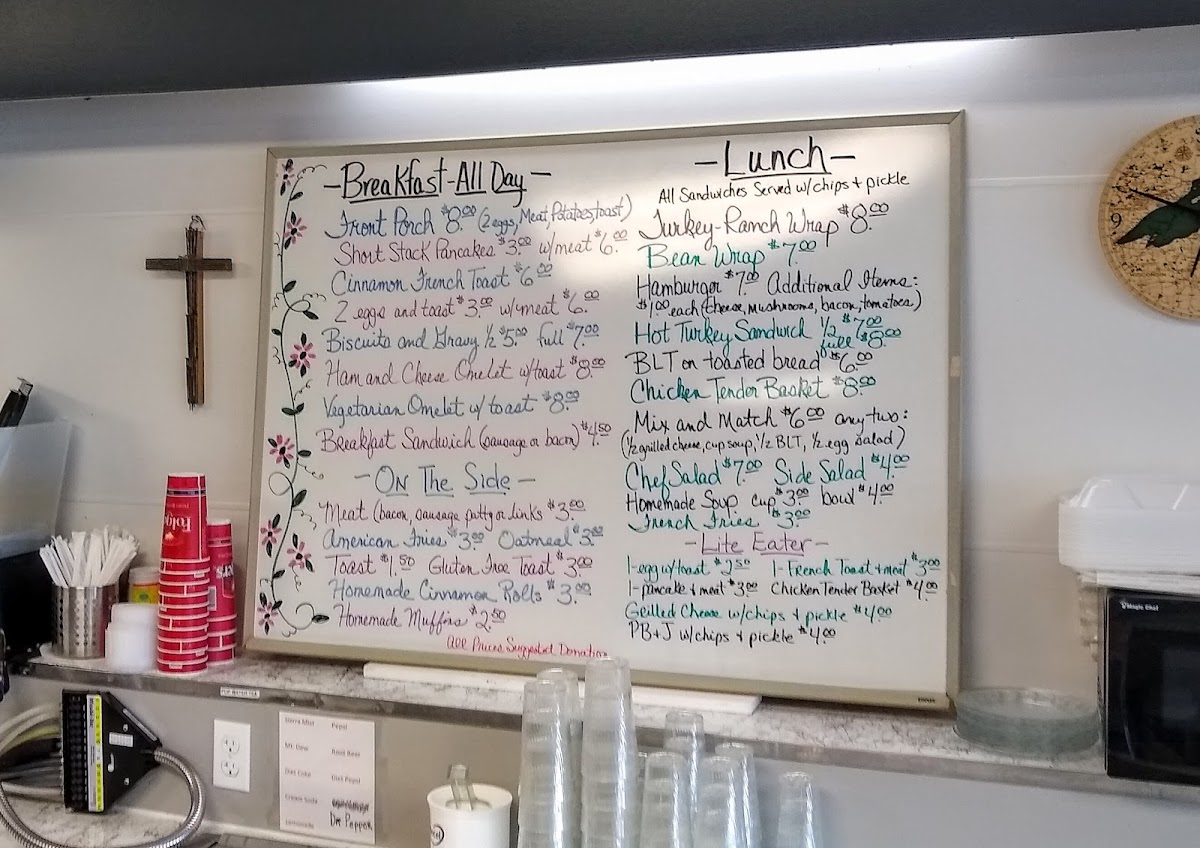 -Breakfast-All Day-
Front Porch $8.00 (2 eggs, Meat, Potatoes, toast)
Short Stack Pancakes $3.00 w/meat $6.00
Cinnamon French Toast $6.00
2 eggs and toast $3.00 w/meat $6.00
Biscuits and Gravy 1/2 $5.00 full $7.00
Ham and Cheese Omelet w/toast $8.00
Vegetarian Omelet w/ toast $8.00
Breakfast Sandwich (sausage or bacon) $4.50
-On The Side-
Meat (bacon, sausage patty or links $3.00
American Fries $3.00 Oatmeal $3.00
Toast $1.50 Gluten Free Toast $3.00
Homemade Cinnamon Rolls $3.00
Homemade Muffins $2.50
All Prices Suggested Donation
-Lunch-
All Sandwiches Served w/chips + pickle
Turkey-Ranch Wrap $8.00
Bean Wrap $7.00
Hamburger $7.00 Additional Items:
$1.00 each (cheese, mushrooms, bacon, tomatoes)
Hot Turkey Sandwich 1/2 $7.00
full $8.00
BLT on toasted bread $6.00
Chicken Tender Basket $8.00
Mix and Match $6.00 any two:
(1/2 grilled cheese, cup soup, 1/2 BLT, 1/2 egg salad)
Chef Salad $7.00 Side Salad $4.00
Homemade Soup cup $3.00 bowl $4.00
French Fries $3.00
-Lite Eater-
1-egg w/toast $2.50 1-French Toast + meat $3.00
1-pancake + meat $3.00 Chicken Tender Basket $4.00
Grilled Cheese w/chips + pickle $4.00
PB+J w/chips + pickle $4.00
9
Folgers
Magic Chef
Sierra Mist Pepsi
Mt. Dew Root Beer
Diet Coke Diet Pepsi
Cream Soda
Lemonade Dr. Pepper